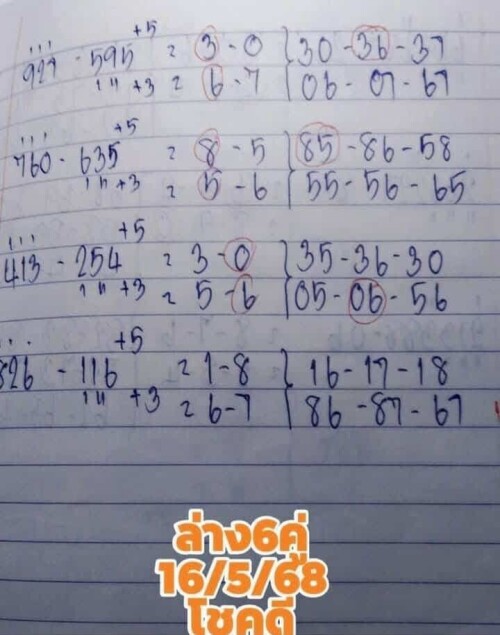 +5
927 - 595 = 3 - 0 { 30 - 36 - 37
14 +3 = 6 - 7 { 06 - 07 - 67
+5
760 - 635 = 8 - 5 { 85 - 86 - 58
14 +3 = 5 - 6 { 55 - 56 - 65
+5
413 - 254 = 3 - 0 { 35 - 36 - 30
14 +3 = 5 - 6 { 05 - 06 - 56
+5
826 - 116 = 1 - 8 { 16 - 17 - 18
14 +3 = 6 - 7 { 86 - 87 - 67
ล่าง6คู่
16/5/68
โชคดี